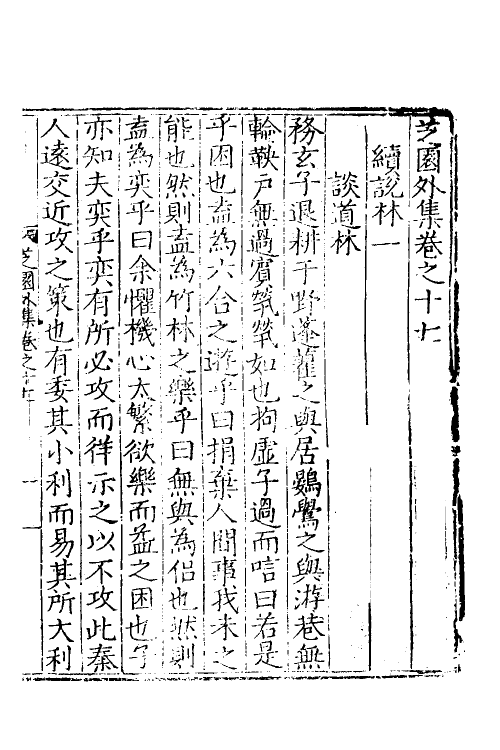 芝園外集卷之十七
續說林一
談道林
務玄子退耕于野蓬藋之與居鷃鷽之與游巷無
輪鞅戸無過賓煢煢如也拘虛子過而唁曰若是
乎困也盍為六合之遊乎曰捐棄人間事我未之
能也然則盍為竹林之樂乎曰無與為侶也然則
盍為奕乎曰余懼機心太繁欲樂而益之困也子
亦知夫奕乎奕有所必攻而佯示之以不攻此秦
人遠交近攻之策也有委其小利而易其所大利
芝園外集卷之十七
一